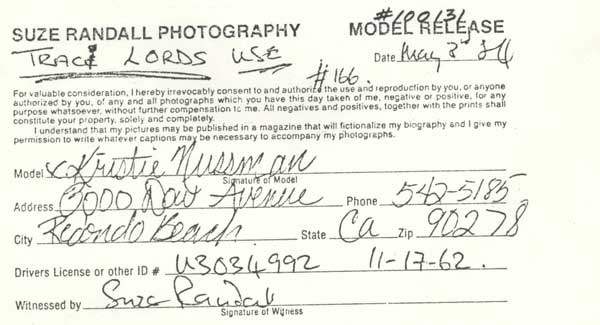 SUZE RANDALL PHOTOGRAPHY
MODEL RELEASE
#100131
TRACI LORDS USE
Date May 3rd 84
#166.
For valuable consideration, I hereby irrevocably consent to and authorize the use and reproduction by you, or anyone
authorized by you, of any and all photographs which you have this day taken of me, negative or positive, for any
purpose whatsoever, without further compensation to me. All negatives and positives, together with the prints shall
constitute your property, solely and completely.
I understand that my pictures may be published in a magazine that will fictionalize my biography and I give my
permission to write whatever captions may be necessary to accompany my photographs.
Model x Kristie Nussman
Signature of Model
Address 3000 Dow Avenue Phone 542-5185
City Redondo Beach State Ca Zip 90278
Drivers License or other ID # U3034992 11-17-62.
Witnessed by Suze Randall
Signature of Witness